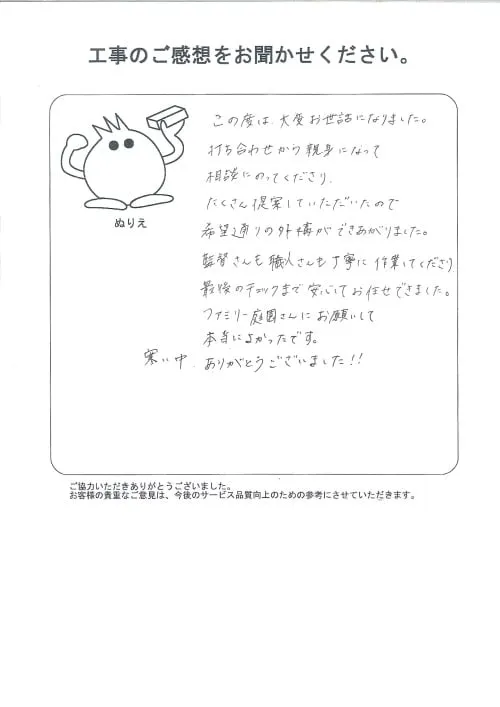 工事のご感想をお聞かせください。
この度は、大変お世話になりました。
打ち合わせから親身になって
相談にのってくださり、
たくさん提案していただいたので
希望通りの外構ができあがりました。
監督さんも職人さんも丁寧に作業してくださり
最後のチェックまで安心してお任せできました。
ファミリー庭園さんにお願いして
本当によかったです。
寒い中、ありがとうございました!!
ぬりえ
ご協力いただきありがとうございました。
お客様の貴重なご意見は、今後のサービス品質向上のための参考にさせていただきます。